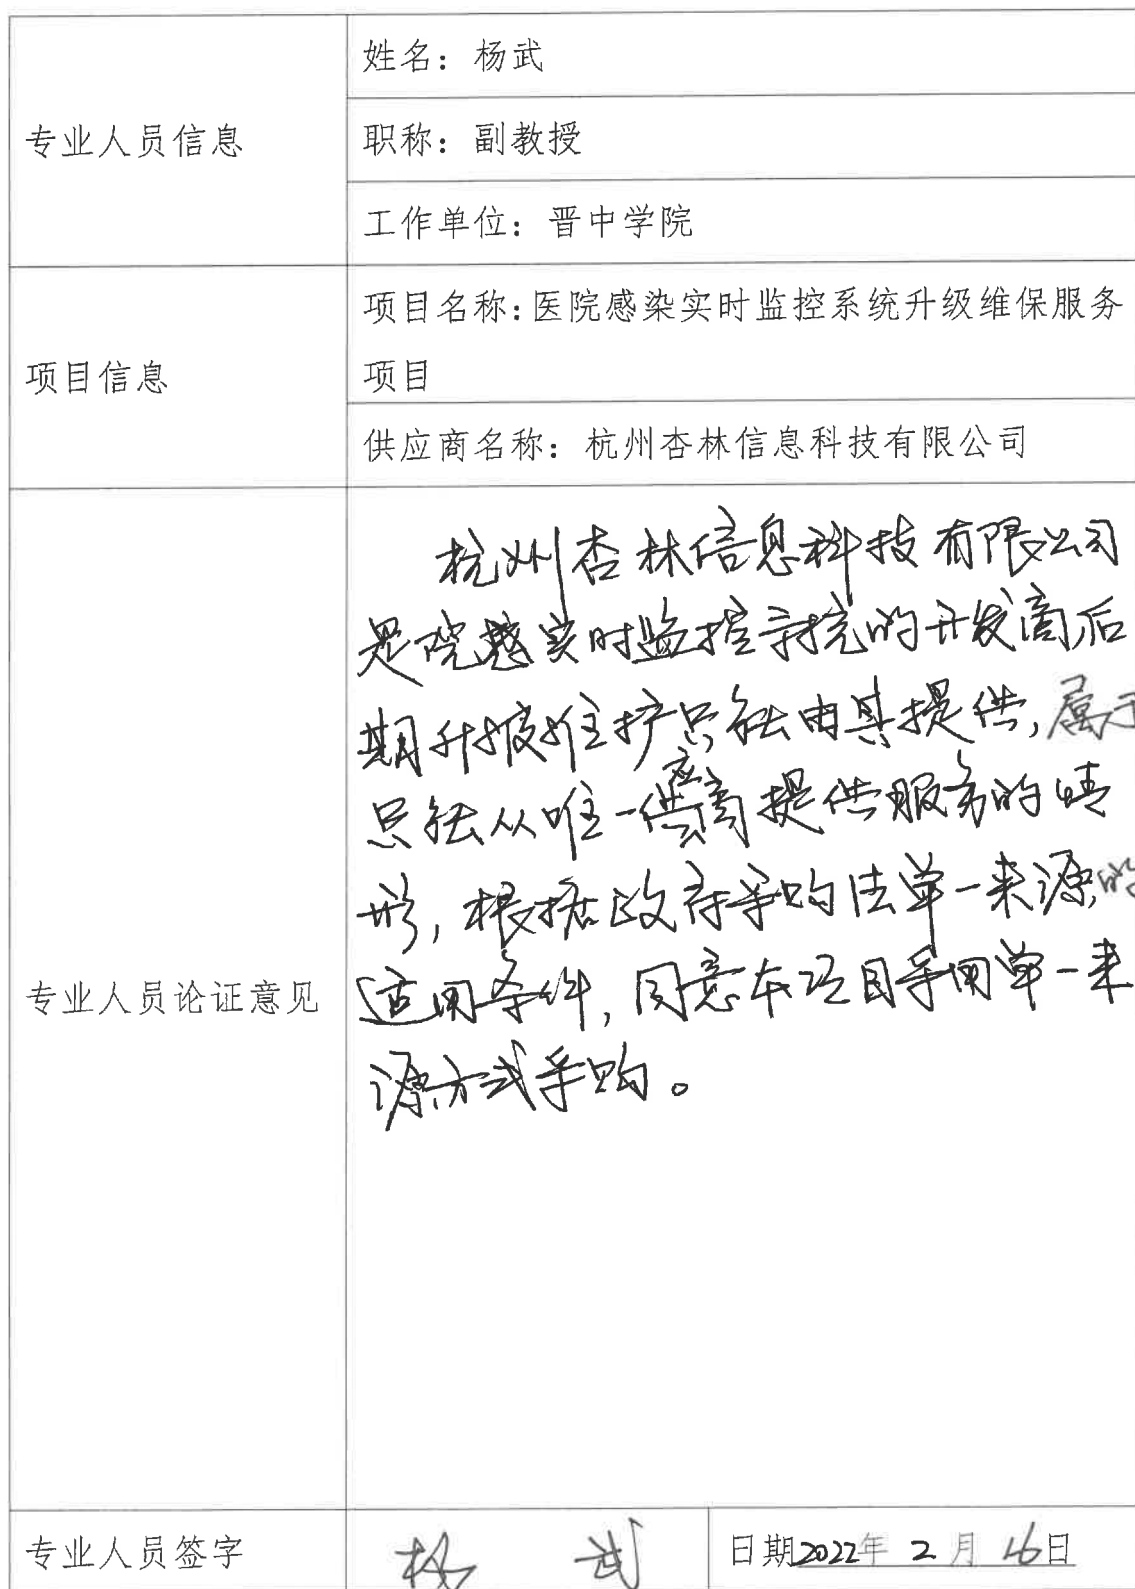 专业人员信息
姓名：杨武
职称：副教授
工作单位：晋中学院
项目信息
项目名称：医院感染实时监控系统升级维保服务
项目
供应商名称：杭州杏林信息科技有限公司
专业人员论证意见
杭州杏林信息科技有限公司
是院感实时监控系统的开发商后
期升级维护只能由其提供，属于
只能从唯一供应商提供服务的情
形，根据政府采购法单一来源的
适用条件，同意本项目采用单一来
源方式采购。
专业人员签字
杨 武
日期2022年 2 月 16日